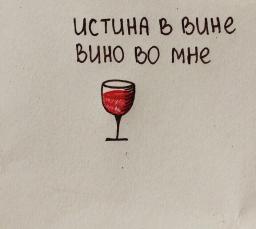 ИСТИНА В ВИНЕ
ВИНО ВО МНЕ